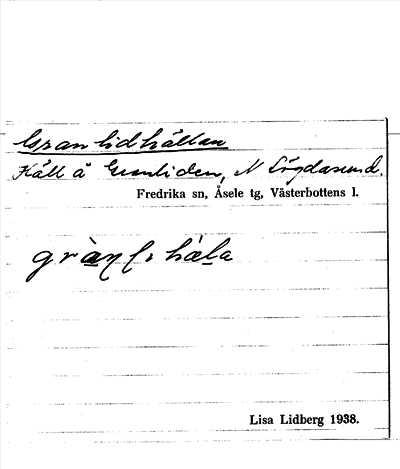 Granlidhällan
Häll å Granliden, N Lögdasund.
Fredrika sn, Åsele tg, Västerbottens l.
Lisa Lidberg 1938.